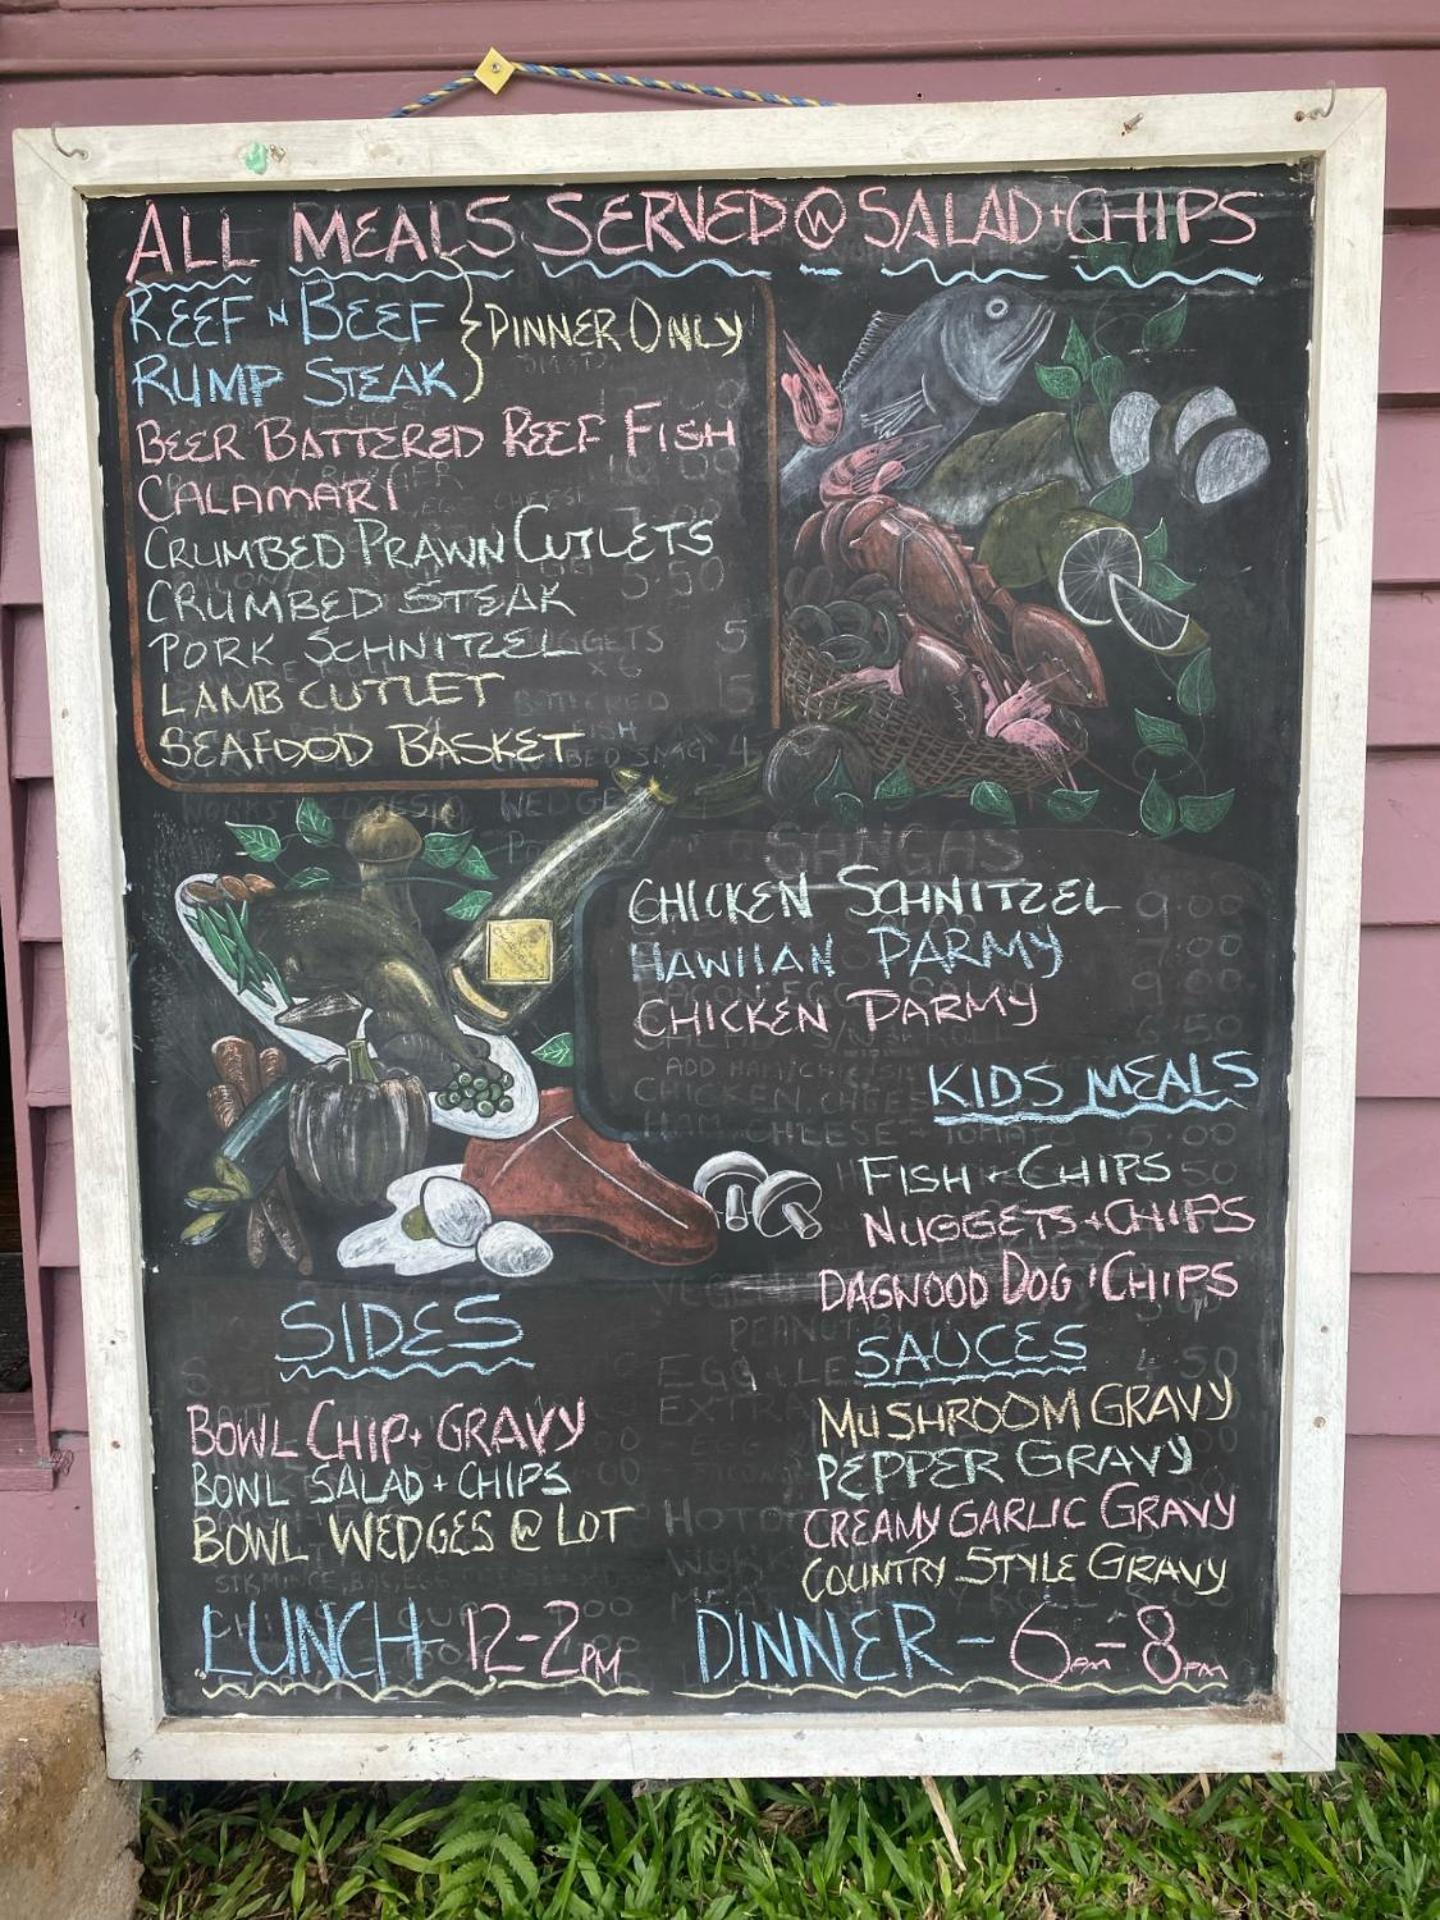 ALL MEALS SERVED @ SALAD + CHIPS
REEF N BEEF
RUMP STEAK
} DINNER ONLY
BEER BATTERED REEF FISH
CALAMARI
CRUMBED PRAWN CUTLETS
CRUMBED STEAK
PORK SCHNITZEL
LAMB CUTLET
SEAFOOD BASKET
SANGAS
CHICKEN SCHNITZEL
HAWIIAN PARMY
CHICKEN PARMY
KIDS MEALS
FISH + CHIPS
NUGGETS + CHIPS
DAGWOOD DOG + CHIPS
SIDES
BOWL CHIP + GRAVY
BOWL SALAD + CHIPS
BOWL WEDGES @ LOT
SAUCES
MUSHROOM GRAVY
PEPPER GRAVY
CREAMY GARLIC GRAVY
COUNTRY STYLE GRAVY
LUNCH 12-2PM
DINNER - 6PM-8PM